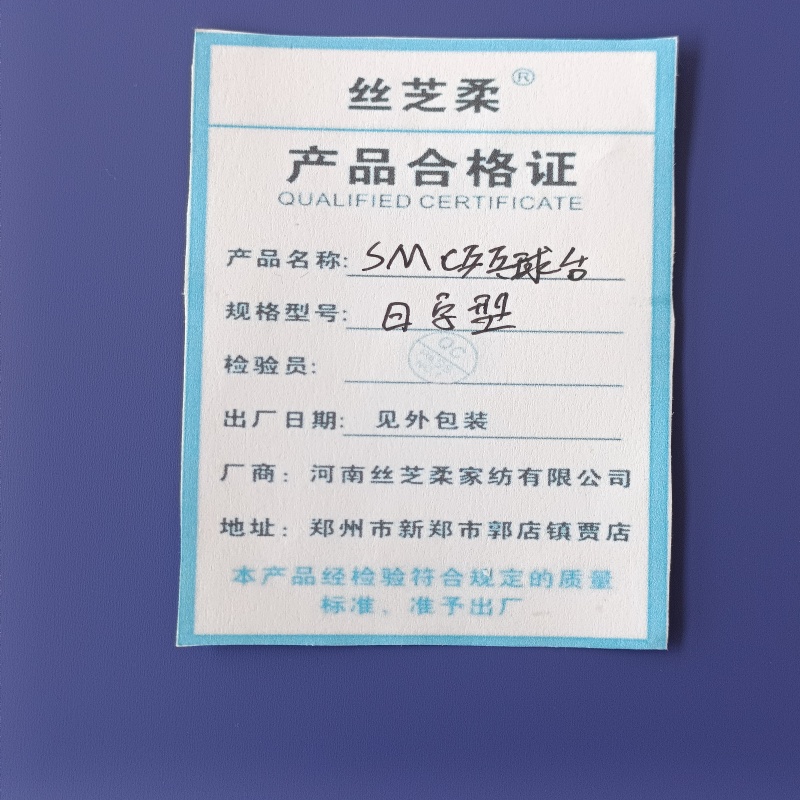 丝芝柔®
产品合格证
QUALIFIED CERTIFICATE
产品名称: SMC乒乓球台
规格型号: 日字型
检验员: QC
出厂日期: 见外包装
厂商: 河南丝芝柔家纺有限公司
地址: 郑州市新郑市郭店镇贾店
本产品经检验符合规定的质量
标准、准予出厂